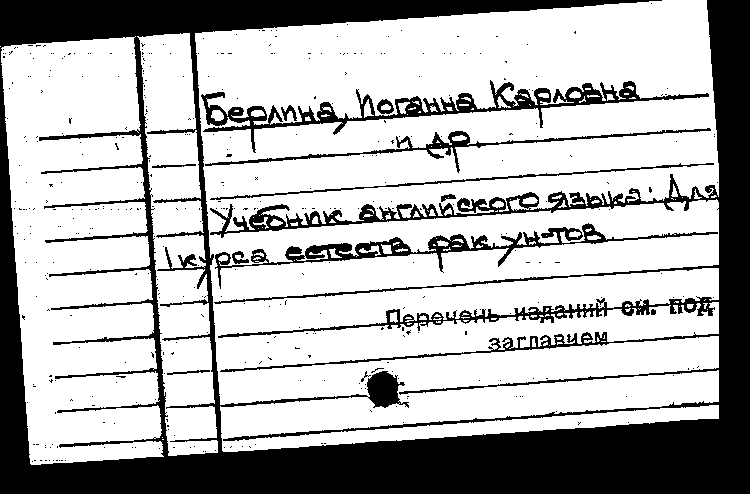 Берлина, Иоганна Карловна
и др.
Учебник английского языка: Для
1 курса естеств. фак. ун-тов
Перечень изданий см. под
заглавием